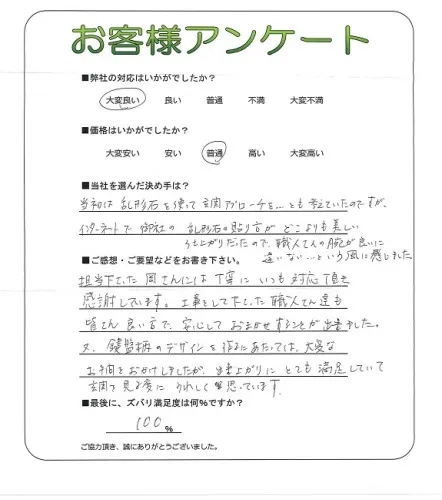 お客様アンケート
■弊社の対応はいかがでしたか?
大変良い 良い 普通 不満 大変不満
■価格はいかがでしたか?
大変安い 安い 普通 高い 大変高い
■当社を選んだ決め手は?
当初は乱形石を使って玄関アプローチを…とも考えていたのですが、
インターネットで御社の乱形石の貼り方がどこよりも美しい
仕上がりだったので、職人さんの腕が良いに
違いない…という風に感じました
■ご感想・ご要望などをお書き下さい。
担当下さった岡さんには丁寧にいつも対応頂き
感謝しています。工事をして下さった職人さん達も
皆さん良い方で、安心しておまかせすることが出来ました。
又、鏡盤柄のデザインを 大変な
お手間をおかけしましたが、出来上がりにとても満足していて
玄関を見る度にうれしく思っています。
■最後に、ズバリ満足度は何%ですか?
100%
ご協力頂き、誠にありがとうございました。